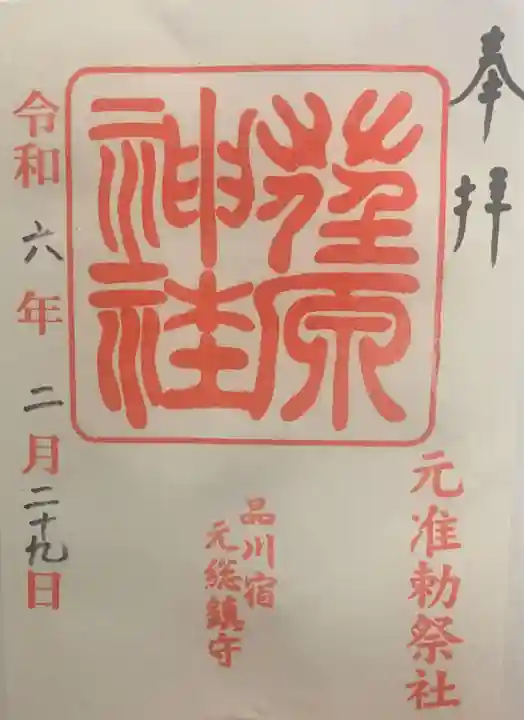 奉拝
元准勅祭社
荏原
神社
品川宿
元総鎮守
令和六年二月二十九日